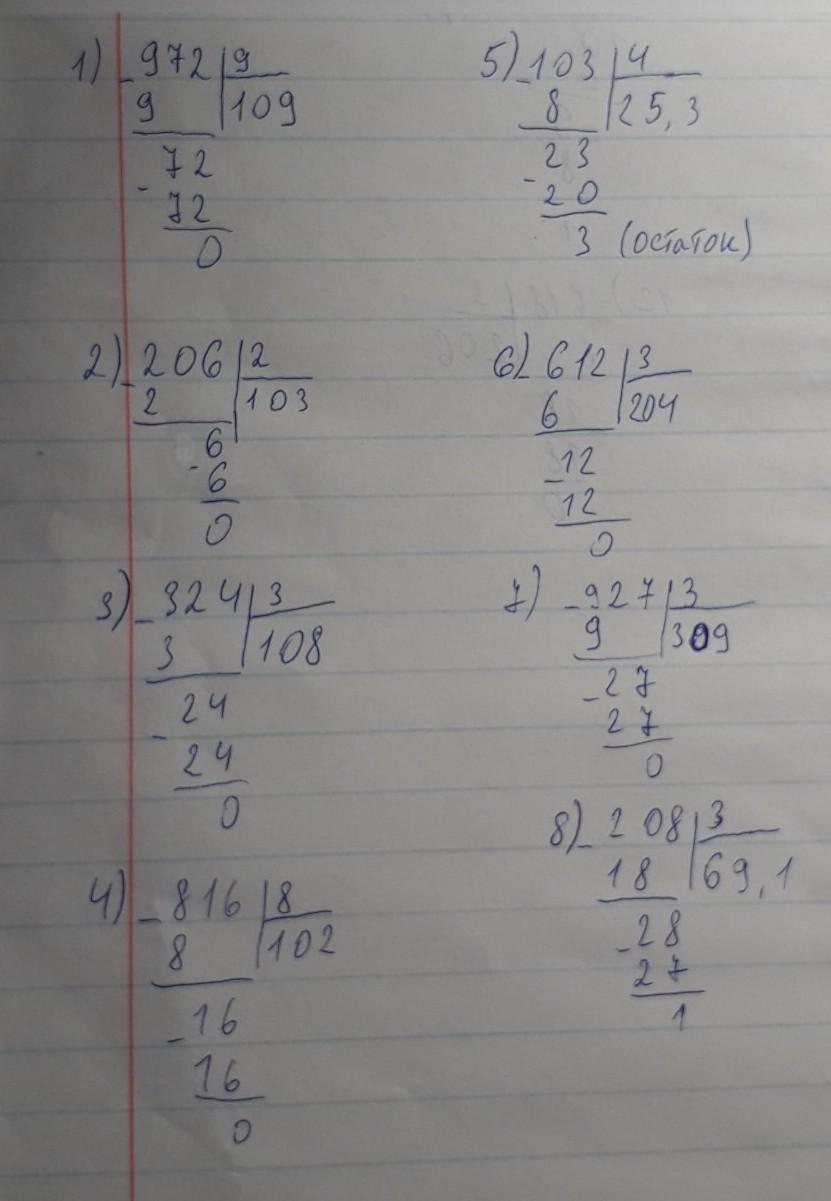 1) - 972 | 9
9 | 109
- 72
72
0
2) - 206 | 2
2 | 103
- 6
6
0
3) - 324 | 3
3 | 108
- 24
24
0
4) - 816 | 8
8 | 102
- 16
16
0
5) - 103 | 4
8 | 25,3
- 23
20
3 (остаток)
6) - 612 | 3
6 | 204
- 12
12
0
7) - 927 | 3
9 | 309
- 27
27
0
8) - 208 | 3
18 | 69,1
- 28
27
1